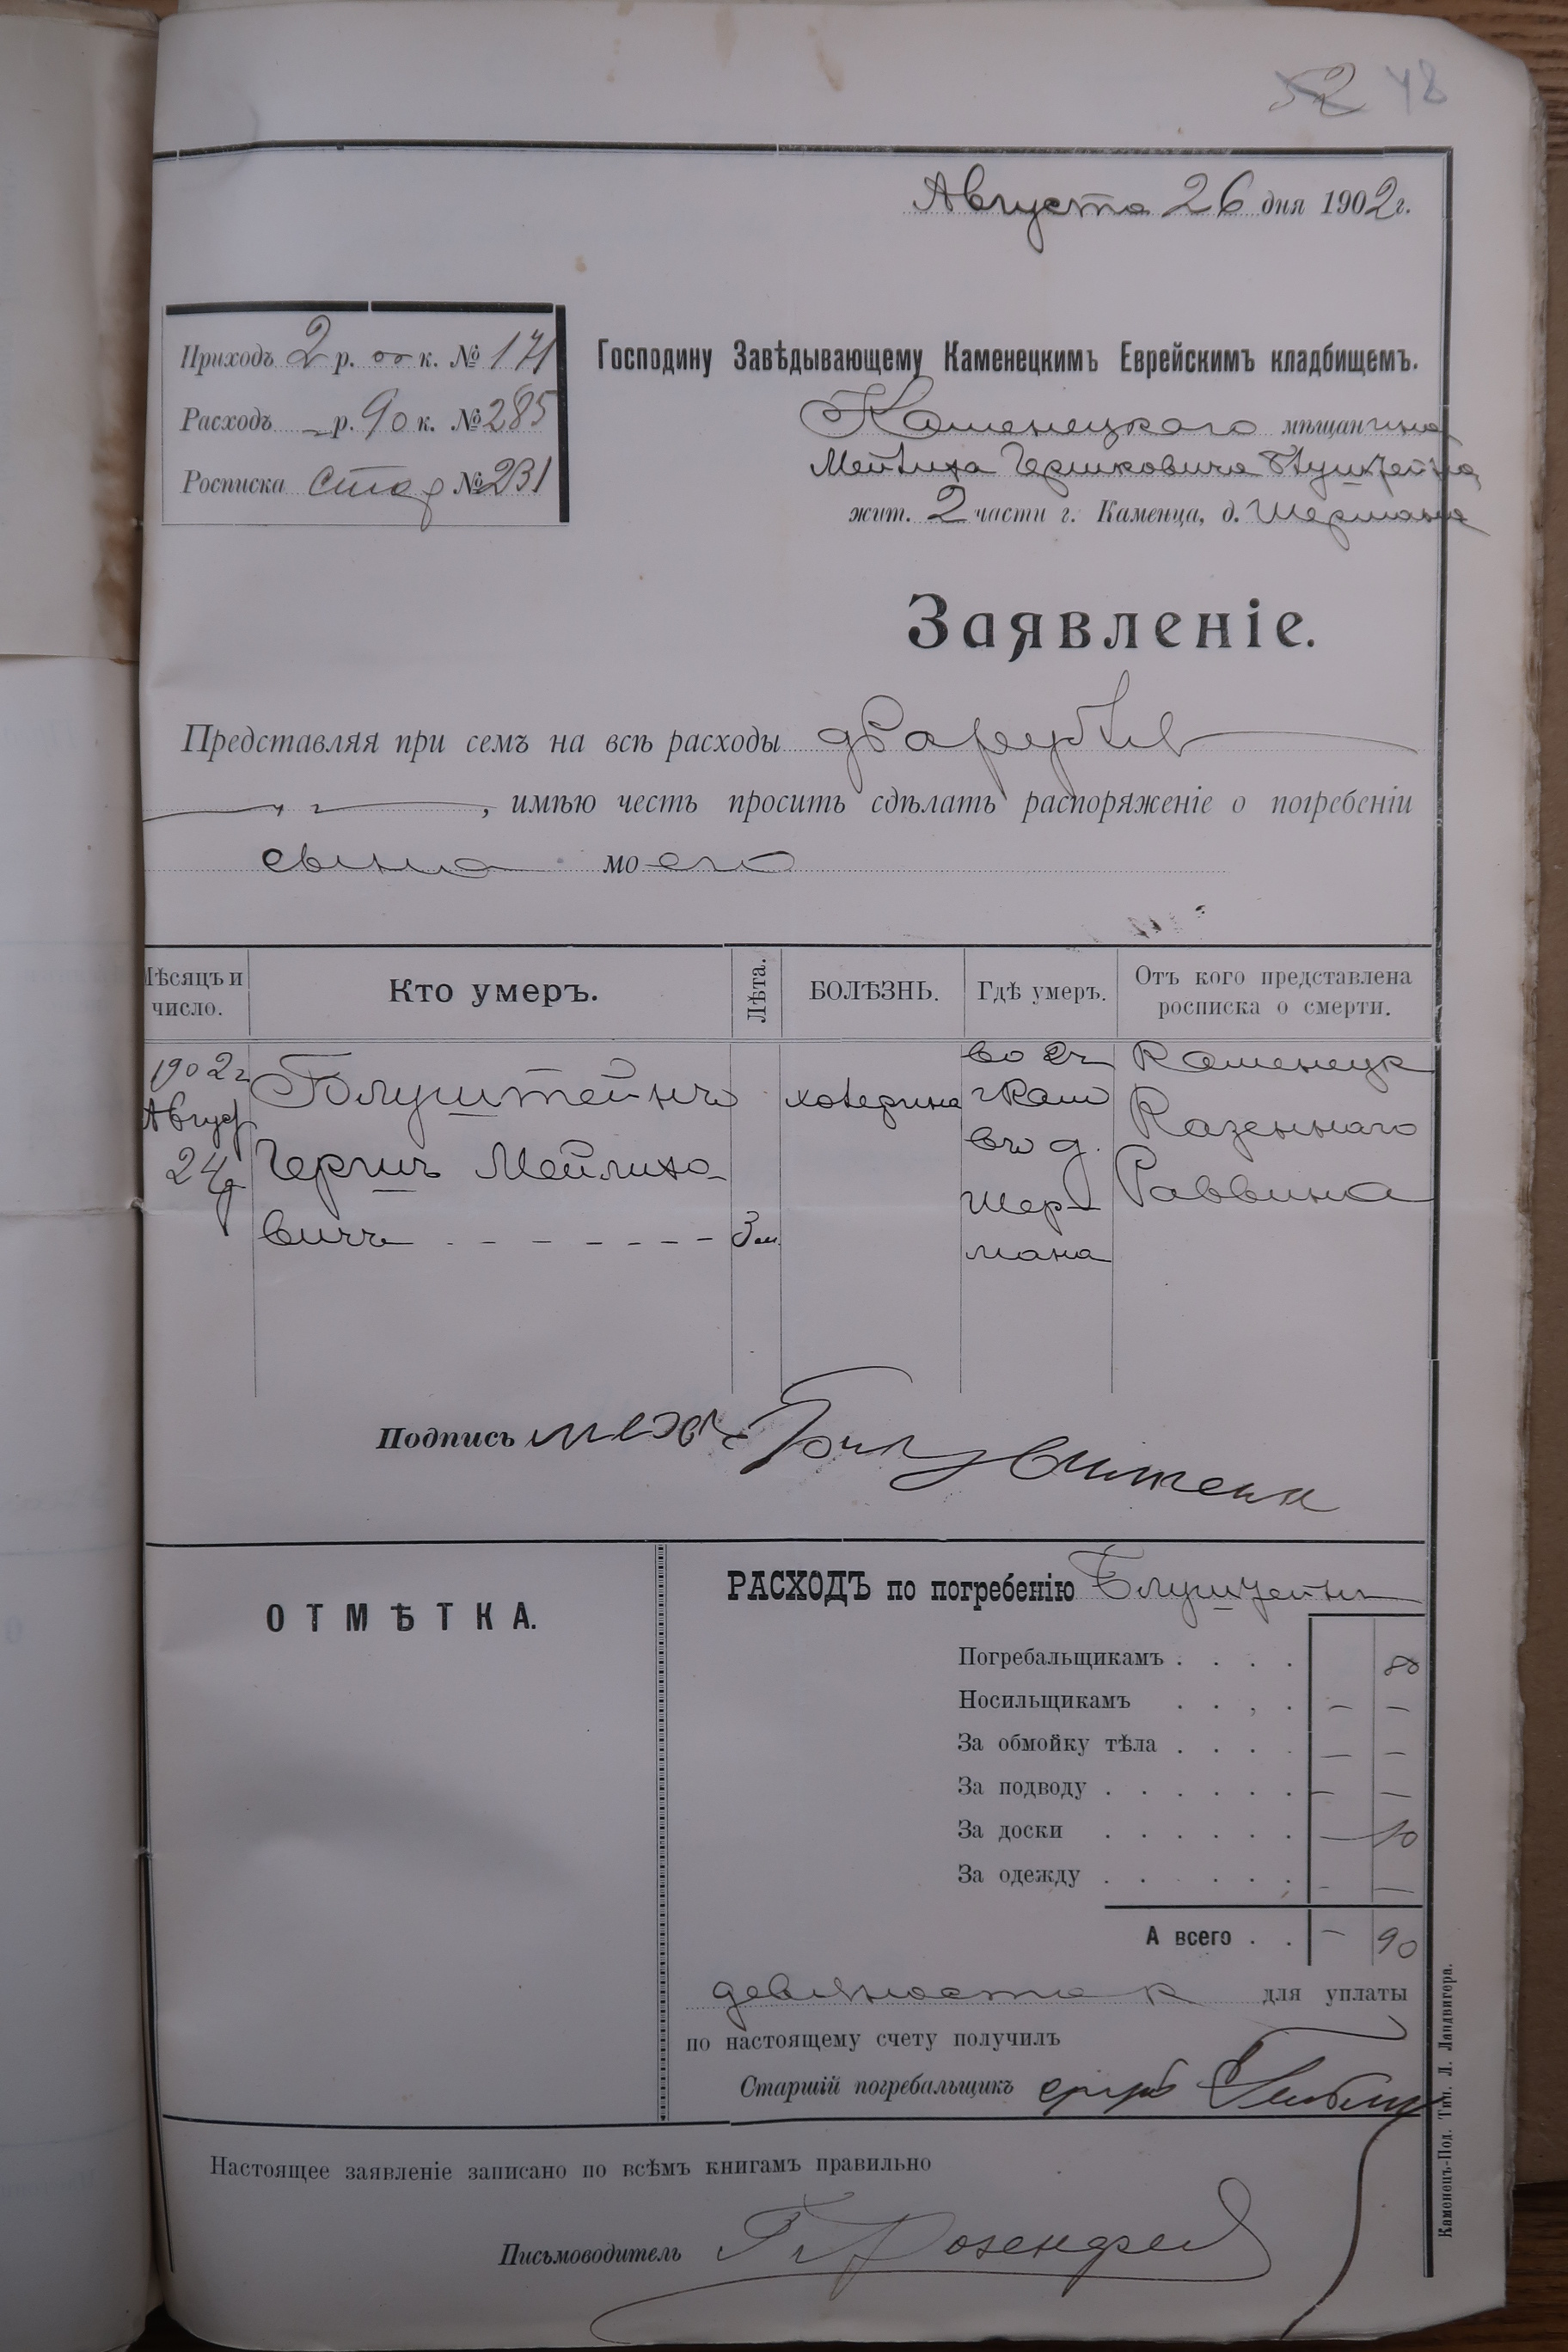 52 48
Августа 26 дня 1902 г.
Приходъ 2 р. 00 к. № 171
Расходъ – р. 90 к. № 285
Росписка № 231
Господину Завѣдывающему Каменецкимъ Еврейскимъ кладбищемъ.
Каменецкого мѣщанина
Мейлиха Гершковича Блуштейна
жит. 2 части г. Каменца, д. Шермана
Заявленіе.
Представляя при семъ на всѣ расходы два рубля
, имѣю честь просить сдѣлать распоряженіе о погребеніи
сына моего
Мѣсяцъ и число. Кто умеръ. Лѣта. БОЛѢЗНЬ. Гдѣ умеръ. Отъ кого представлена росписка о смерти.
902 г во 2 ч Каменецк
Август Блуштейнъ холерина г Кам Казеннаго
24 Гершъ Мейлихо- въ д. Раввина
вичъ - - - - - - - - 3 м. Шер-
мана
Подпись
ОТМѢТКА.
РАСХОДЪ по погребенію Блуштейнъ
Погребальщикамъ . . . . 80
Носильщикамъ . . . . – –
За обмойку тѣла . . . . – –
За подводу . . . . . . – –
За доски . . . . . . – 10
За одежду . . . . . . – –
А всего . . – 90
девяносто к для уплаты
по настоящему счету получилъ
Старшій погребальщикъ
Настоящее заявленіе записано по всѣмъ книгамъ правильно
Письмоводитель Розенфел
Каменецъ-Под. Тип. Л. Ландвигера.